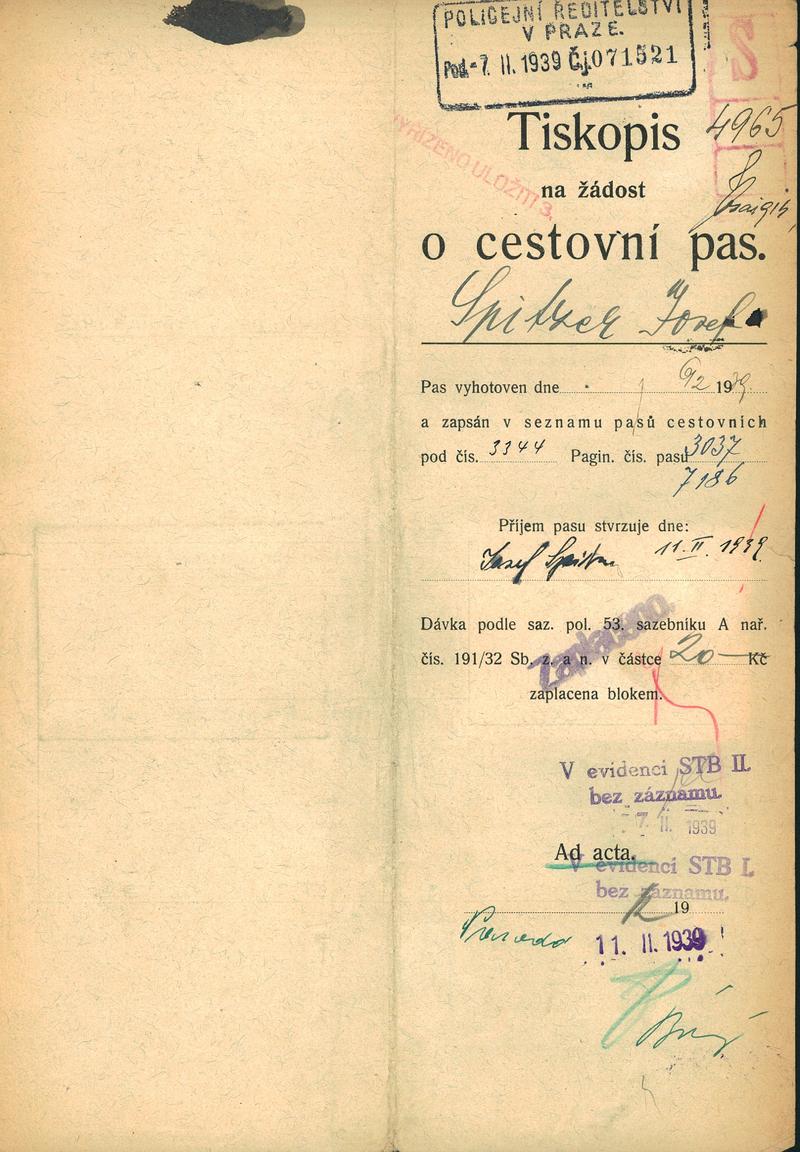 POLICEJNÍ ŘEDITELSTVÍ
V PRAZE.
Pod. -7. II. 1939 Čj. 071521
S
Tiskopis 4965
VYŘÍZENO ULOŽITI 3.
na žádost
o cestovní pas.
Spitzer Josef
Pas vyhotoven dne 9/2 1939.
a zapsán v seznamu pasů cestovních
pod čís. 3344 Pagin. čís. pasu 3037
7186
Příjem pasu stvrzuje dne:
Josef Spitzer 11. II. 1939.
Dávka podle saz. pol. 53. sazebníku A nař.
čís. 191/32 Sb. z. a n. v částce 20 — Kč
Zaplaceno.
zaplacena blokem.
V evidenci STB II.
bez záznamu.
7. II. 1939
Ad acta.
V evidenci STB I.
bez záznamu.
19
11. II. 1939